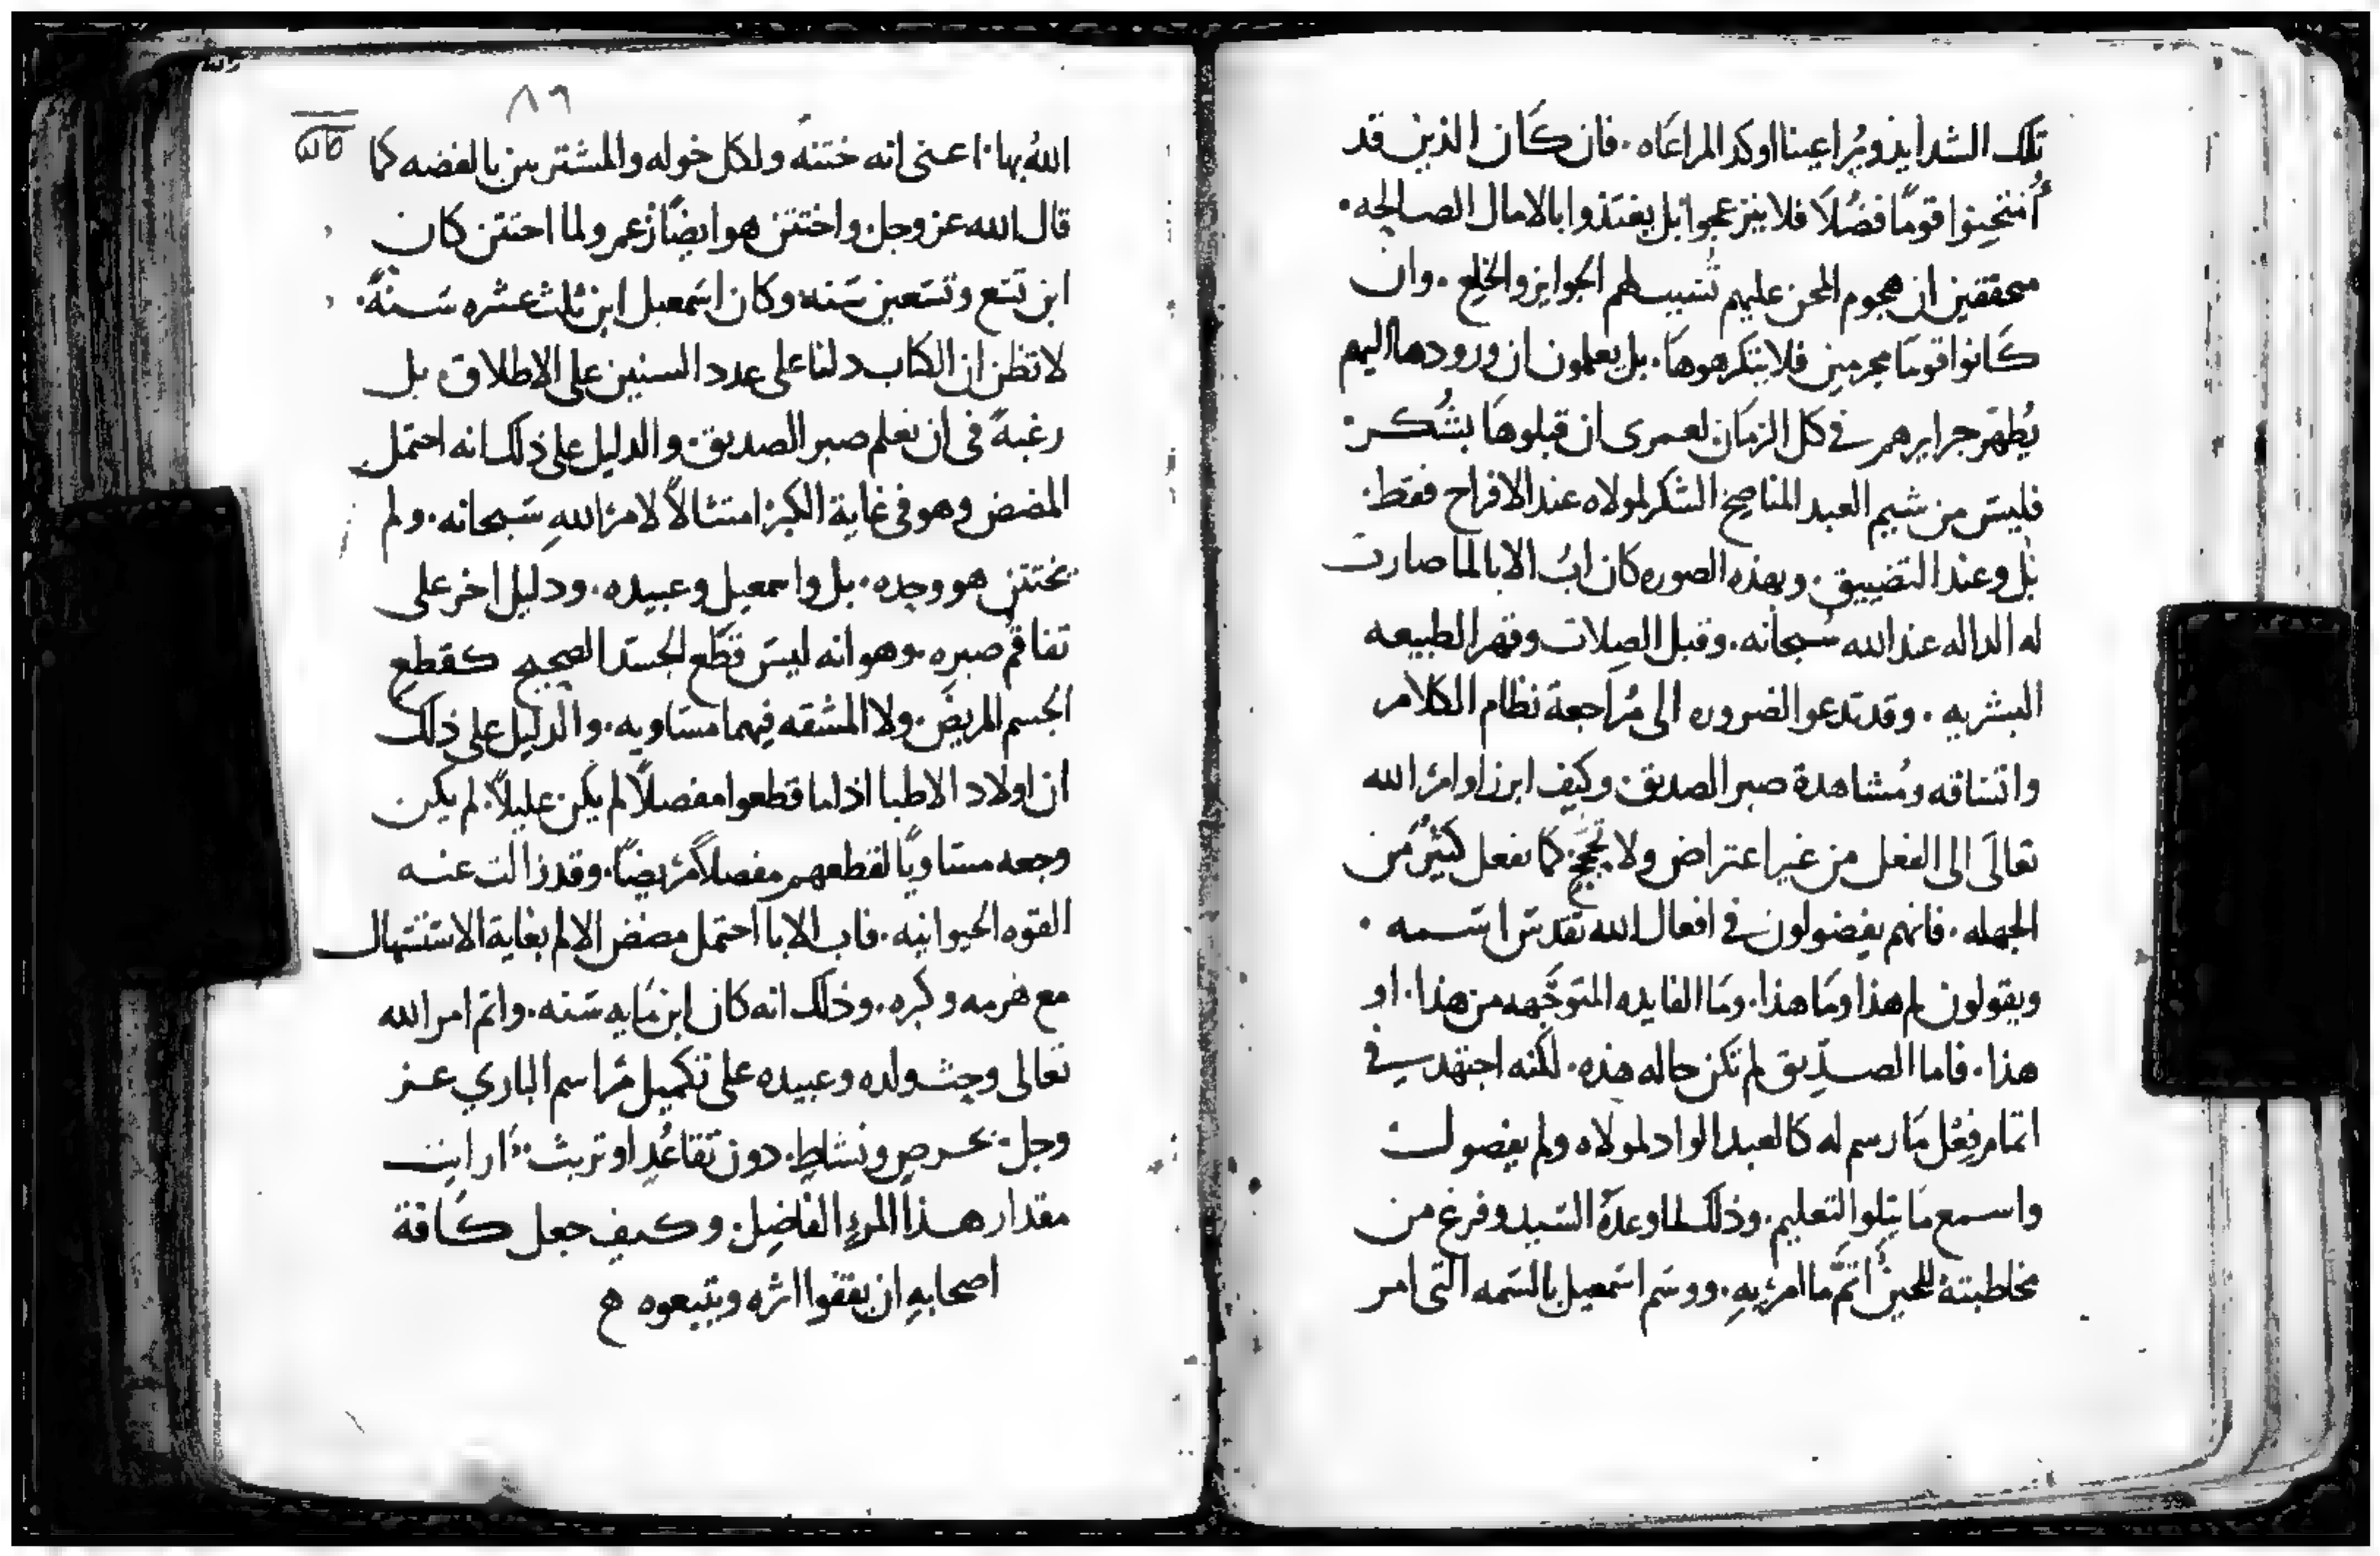 تلك الشدايد ويُراعينا اوكد المراعَاه. فان كَان الذين قد
اُمتحِنوا قومًا فضُلاَ فلا ينزعجوا بل يغتذوا بالامال الصالحِه.
محققين ان هجوم المحن عليهم تُسَبب لهم الجوايز والخلع. وان
كَانوا قومًا مجرمين فلا يتكرهوهَا. بل يعلمون ان ورودها اليهم
يُطهّر جرايرهم في كل الزمَان لعمرى ان قبلوهَا بشُكر.
فليسَ من شيم العبد المناصح الشكر لمولاه عند الافراح فقط.
بَل وعند التضييق. وبهذه الصوره كان ابُ الابا لما صارت
له الداله عند الله سُبحانه. وقبل الصِلات وقهر الطبيعه
البشريه. وقد تدعوا الضروره الى مُراجعة نظام الكلام
واتساقه ومُشاهدة صبر الصديق. وكيف ابرز اوامرَ الله
تعالَى الى الفعل من غير اعتراض ولا تحَجّج. كما تفعل كثيرٌ من
الجهله. فانهم يفضولون في افعال الله تقدسَ اسَمه.
ويقولون لم هذا ومَا هذا. ومَا الفايده المتوجّهه من هذا. او
هذا. فاما الصدِّيق لم تكن حاله هذه. لكنه اجتهد في
اتمام فِعْل مَا رسم له كالعبد الواد لمولاه ولم يفضول
واسمع مَا يتلو التعليم. وذلك لما وعدَهُ السَيد وفرغ من
مخاطبتهُ للحين اتمَّ ما امرَ بِهِ. ووسَم اسَمعيل بالسَمه التى امر
٨٦
قاله
اللهُ بها. اعنى انه ختنه ولكل خوله والمشترين بالفضه كما
قال الله عز وجل. واختتن هو ايضًا زعم ولما اختتن كان
ابن تسَع وتسَعين سَنه. وكان اسَمعيل ابن ثلث عشره سَنةً.
لا تظن ان الكتاب دلنا على عدد السنين على الاطلاق. بل
رغبةً فى ان نعلم صبر الصديق. والدليل على ذلك انه احتمل
المضض وهو فى غاية الكبرَ امتثالاً لامرَ اللهِ سَبحانه. ولم
يختتن هو وحده. بل واسمعيل وعبيده. ودليل اخر على
تفاقُم صبرِه. وهو انه ليسَ قطْع الجسَد الصحيح كقطع
الجسم المريضَ. ولا المشقه فيهما مسَاويه. والدليل على ذلك
ان اولاد الاطبا اذا ما قطعوا مفصلاً لم يكن عليلاً. لم يكن
وجعه مساويًا لقطعهم مفصلاً مرَيضًا. وقد زالت عنه
القوه الحيوانيه. فاب الابا احتمل مضض الالم بغاية الاسَتسهال
مع هرمه وكبره. وذلك انه كان ابن مَايه سَنه. واتم امر الله
تعالى وحث ولده وعبيده على تكميل مرَاسم الباري عز
وجل. بحرصٍ ونشاطٍ. دون تقاعُدٍ او تربث. اَرايت
مقدار هذا المرءِ الفاضِل. وكيف جعل كَافة
اصحابهِ ان يقفوا اثرَه ويتبعوه ه